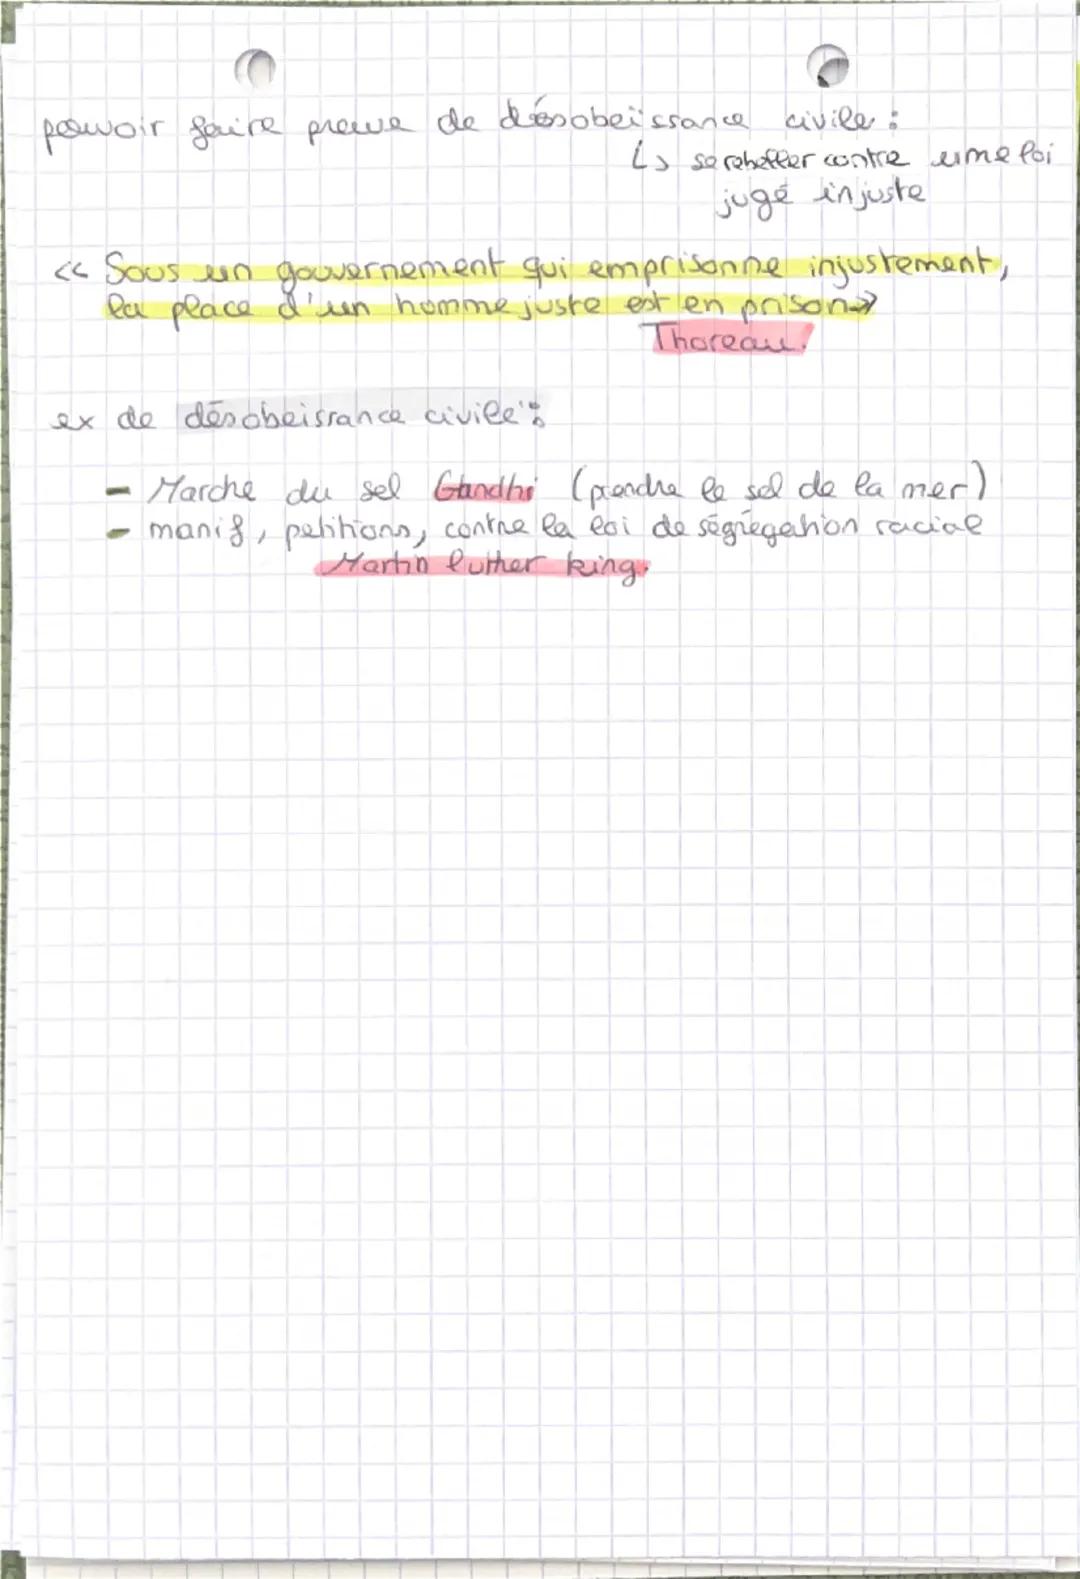 pouvoir faire preuve de désobeïssance civile :
↳ se rebeller contre une loi
jugé injuste
<< Sous un gouvernement qui emprisonne injustement,
la place d'un homme juste est en prison >>
Thoreau.
ex de désobeissance civile :
- Marche du sel Gandhi (prendre le sel de la mer)
- manif, petitions, contre la loi de ségrégation racial
Martin luther king.